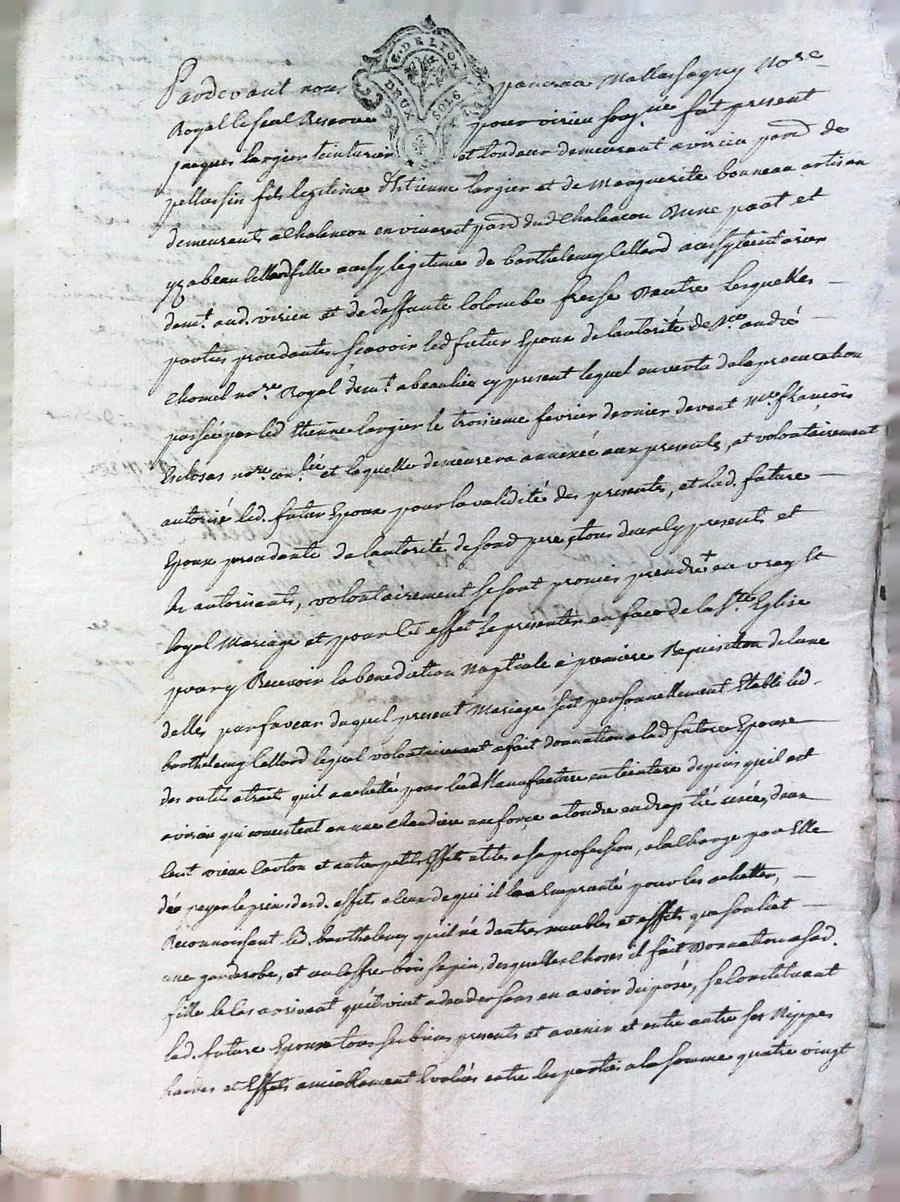 G. DE LYON
DEUX SOLS
Pardevant nous pancrace Mallassagny No.re
Royal Reservé pour virieu soug.né fut present
jacques largier teinturier et tondeur demeurant a virieu par.d de
pellussin fils legitime d'Etienne largier et de Marguerite bonneau artisan
demeurants a Chalancon en vivarest par.d dud Chalancon D'une part et
yzabeau lellard fille aussy legitime de barthelemy lellard aussy teinturier
dem.t aud. virieu et de deffunte Colombe freise D'autre Lesquelles
parties procedantes scavoir led futur Epoux de l'autorité de S.r andré
Chomel no.re Royal dem.t a beaulieu cy present lequel en vertu de la procuration
passée par led Etienne largier le troisieme fevrier dernier devant M.e françois
Esclosas no.re et laquelle demeurera annexée aux presentes, et volontairement
autorisé led. futur Epoux pour la validité des presentes, et lad. future
Epouse procedante de l'autorité de sond pere, tous deux cy presents et
les autorisants, volontairement se sont promis prendre en vray et
loyal Mariage et pour cet effet se presenter en face de la S.te Eglise
pour y Recevoir la benediction Nuptiale a premiere Requisition de l'une
d'elles en faveur duquel present Mariage s'est personnellement Etabli led.
barthelemy lellard lequel volontairement a fait donnation a lad future Epouse
des outils et traits qu'il a achetté pour lad Manufacture en teinture depuis qu'il est
a virieu qui consistent en une chaudiere une force a tondre en drap usée, deux
vieux et autres petits Effets utiles a sa profession, a la Charge par Elle
de payer le prix desd. effits a ceux de qui il l'a Emprunté pour les achetter,
Reconnoissant led. barthelemy qu'il n'a d'autres meubles et effits que son lict
une garderobe, et un coffre bois sapin, desquelles Choses il fait Donnation a sad.
fille le Cas arrivant qu'il vint a deceder sans en avoir disposé, se Constituant
lad. future Epouse tous ses biens presents et avenir et entre autre ses Nippes
hardes et Effets amiablement Evalués entre les parties a la somme quatre vingt